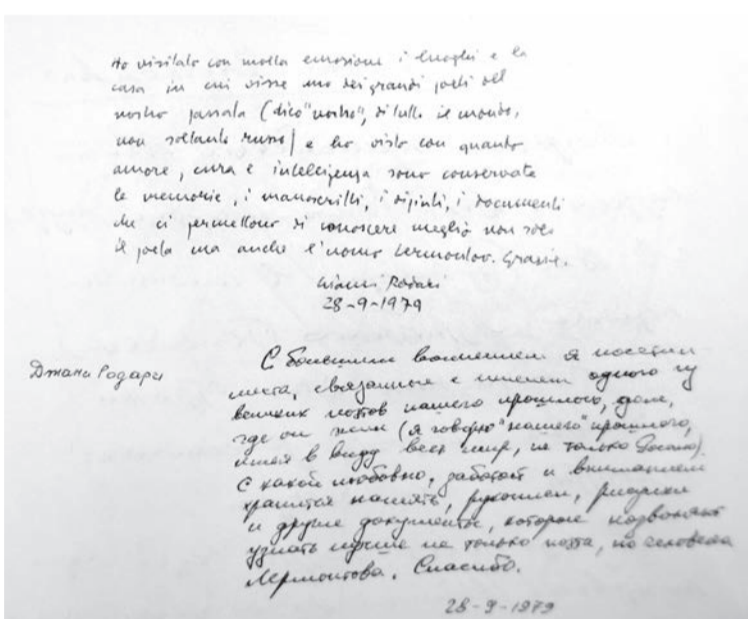 Ho visitato con molta emozione i luoghi e la
casa in cui visse uno dei grandi poeti del
nostro passato (dico "nostro", di tutto il mondo,
non soltanto russo) e ho visto con quanto
amore, cura e intelligenza sono conservate
le memorie, i manoscritti, i dipinti, i documenti
che ci permettono di conoscere meglio non solo
il poeta ma anche l'uomo Lermontov. Grazie.
Gianni Rodari
28-9-1979
Джани Родари
С большим волнением я посетил
места, связанные с именем одного из
великих поэтов нашего прошлого, дом,
где он жил (я говорю "нашего" прошлого,
имея в виду весь мир, не только Россию).
С какой любовью, заботой и вниманием
хранится память, рукописи, рисунки
и другие документы, которые позволяют
узнать лучше не только поэта, но человека
Лермонтова. Спасибо.
28-9-1979